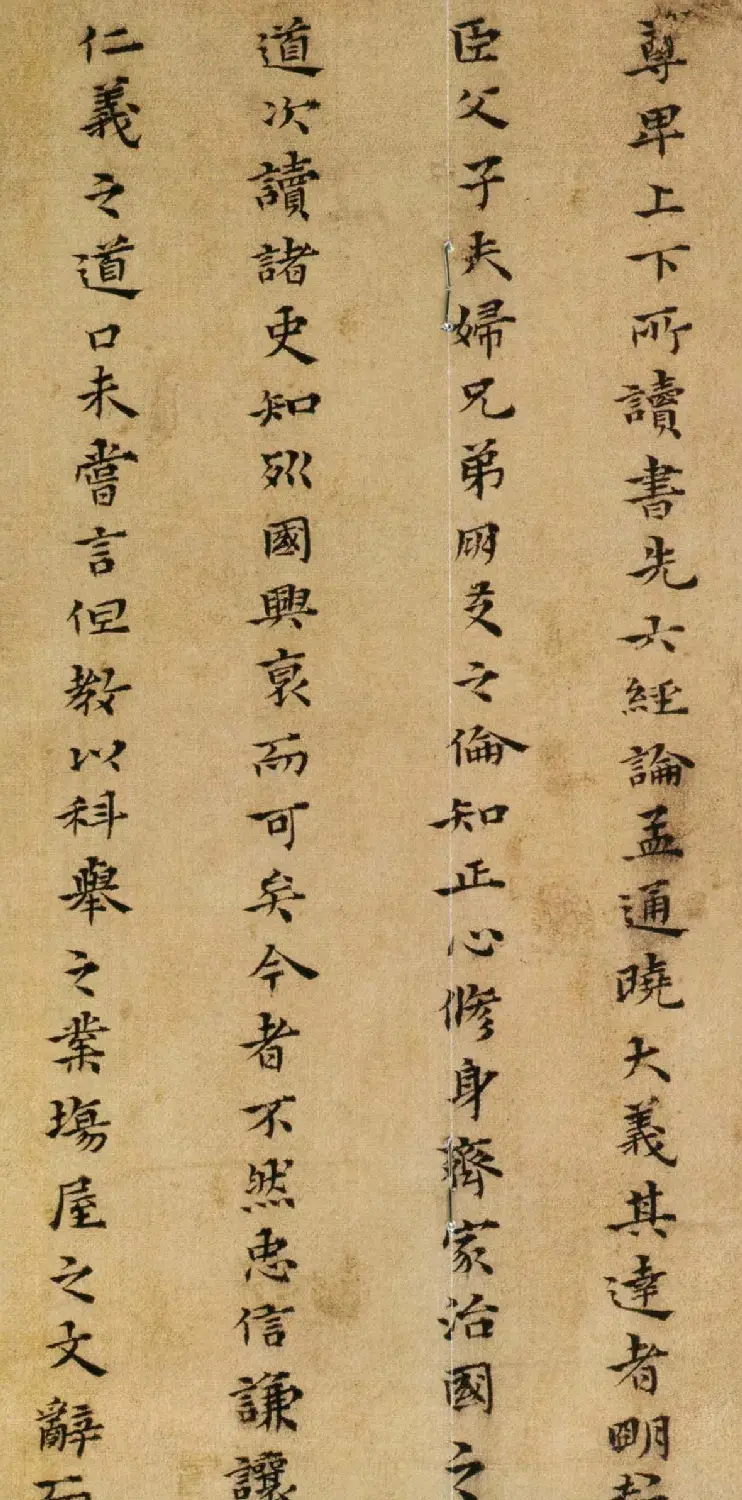 尊卑上下所讀書先六經論孟通曉大義其達者明
臣父子夫婦兄弟朋友之倫知正心脩身齊家治國之
道次讀諸史知列國興衰而可矣今者不然忠信謙讓
仁義之道口未嘗言但教以科舉之業塲屋之文辭而